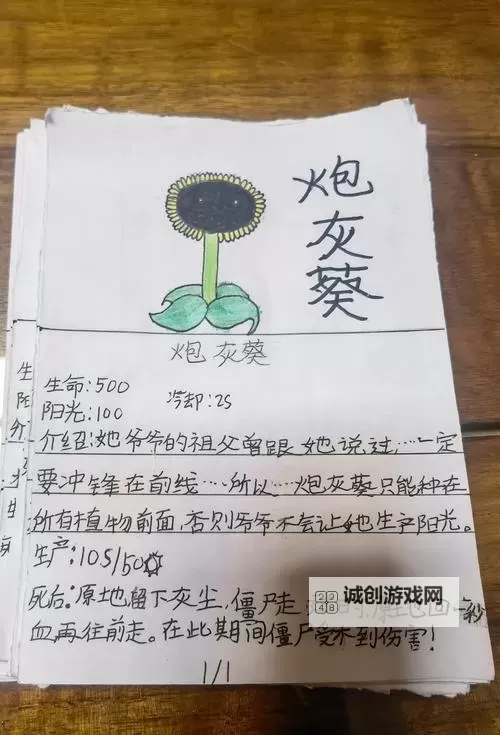 炮灰葵
炮灰葵
生命:500
阳光:100 冷却:2S
介绍:她爷爷的祖父曾跟她说过……一定
要冲锋在前线……所以……炮灰葵只能种在
所有植物前面,否则爷爷不会让她生产阳光。
生产:10S/50
死后:原地留下灰尘,僵尸走 一秒
血再往前走。在此期间僵尸受不到伤害!
1/1
2248 诚创游戏网
生
阳